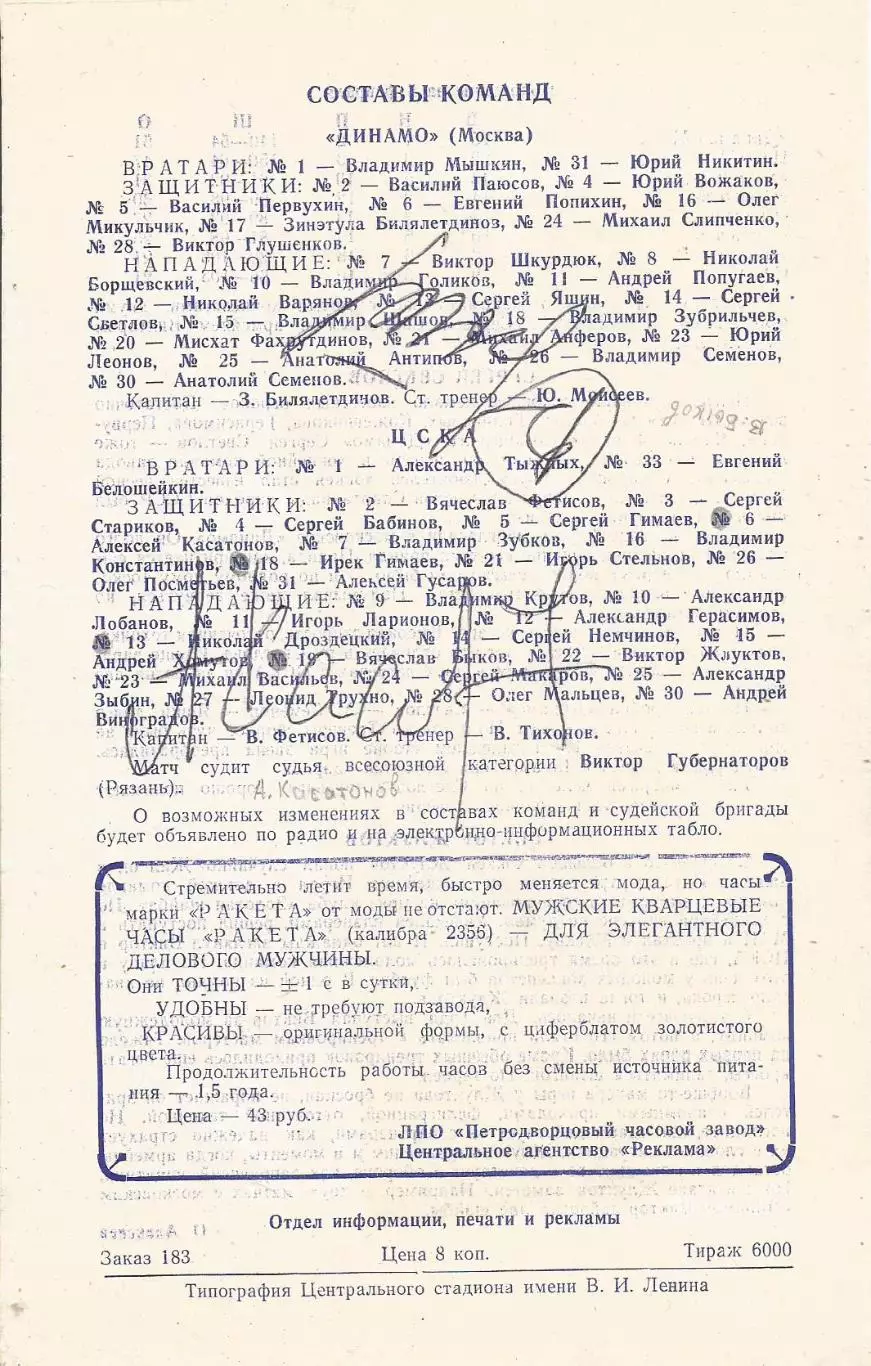 СОСТАВЫ КОМАНД
«ДИНАМО» (Москва)
ВРАТАРИ: № 1 — Владимир Мышкин, № 31 — Юрий Никитин.
ЗАЩИТНИКИ: № 2 — Василий Паюсов, № 4 — Юрий Вожаков,
№ 5 — Василий Первухин, № 6 — Евгений Попихин, № 16 — Олег
Микульчик, № 17 — Зинэтула Билялетдиноз, № 24 — Михаил Слипченко,
№ 28 — Виктор Глушенков.
НАПАДАЮЩИЕ: № 7 — Виктор Шкурдюк, № 8 — Николай
Борщевский, № 10 — Владимир Голиков, № 11 — Андрей Попугаев,
№ 12 — Николай Варянов, № 13 — Сергей Яшин, № 14 — Сергей
Светлов, № 15 — Владимир Шашов, № 18 — Владимир Зубрильчев,
№ 20 — Мисхат Фахрутдинов, № 21 — Михаил Анферов, № 23 — Юрий
Леонов, № 25 — Анатолий Антипов, № 26 — Владимир Семенов,
№ 30 — Анатолий Семенов.
Капитан — З. Билялетдинов. Ст. тренер — Ю. Моисеев.
В. Быков
ЦСКА
ВРАТАРИ: № 1 — Александр Тыжных, № 33 — Евгений
Белошейкин.
ЗАЩИТНИКИ: № 2 — Вячеслав Фетисов, № 3 — Сергей
Стариков, № 4 — Сергей Бабинов, № 5 — Сергей Гимаев, № 6 —
Алексей Касатонов, № 7 — Владимир Зубков, № 16 — Владимир
Константинов, № 18 — Ирек Гимаев, № 21 — Игорь Стельнов, № 26 —
Олег Посметьев, № 31 — Алексей Гусаров.
НАПАДАЮЩИЕ: № 9 — Владимир Крутов, № 10 — Александр
Лобанов, № 11 — Игорь Ларионов, № 12 — Александр Герасимов,
№ 13 — Николай Дроздецкий, № 14 — Сергей Немчинов, № 15 —
Андрей Хомутов, № 19 — Вячеслав Быков, № 22 — Виктор Жлуктов,
№ 23 — Михаил Васильев, № 24 — Сергей Макаров, № 25 — Александр
Зыбин, № 27 — Леонид Трухно, № 28 — Олег Мальцев, № 30 — Андрей
Виноградов.
Капитан — В. Фетисов. Ст. тренер — В. Тихонов.
Матч судит судья всесоюзной категории Виктор Губернаторов
(Рязань).
А. Касатонов
О возможных изменениях в составах команд и судейской бригады
будет объявлено по радио и на электронно-информационных табло.
Стремительно летит время, быстро меняется мода, но часы
марки «РАКЕТА» от моды не отстают. МУЖСКИЕ КВАРЦЕВЫЕ
ЧАСЫ «РАКЕТА» (калибра 2356) — ДЛЯ ЭЛЕГАНТНОГО
ДЕЛОВОГО МУЖЧИНЫ.
Они ТОЧНЫ — ± 1 с в сутки,
УДОБНЫ — не требуют подзавода,
КРАСИВЫ — оригинальной формы, с циферблатом золотистого
цвета.
Продолжительность работы часов без смены источника пита-
ния — 1,5 года.
Цена — 43 руб.
ЛПО «Петродворцовый часовой завод»
Центральное агентство «Реклама»
Отдел информации, печати и рекламы
Заказ 183 Цена 8 коп. Тираж 6000
Типография Центрального стадиона имени В. И. Ленина